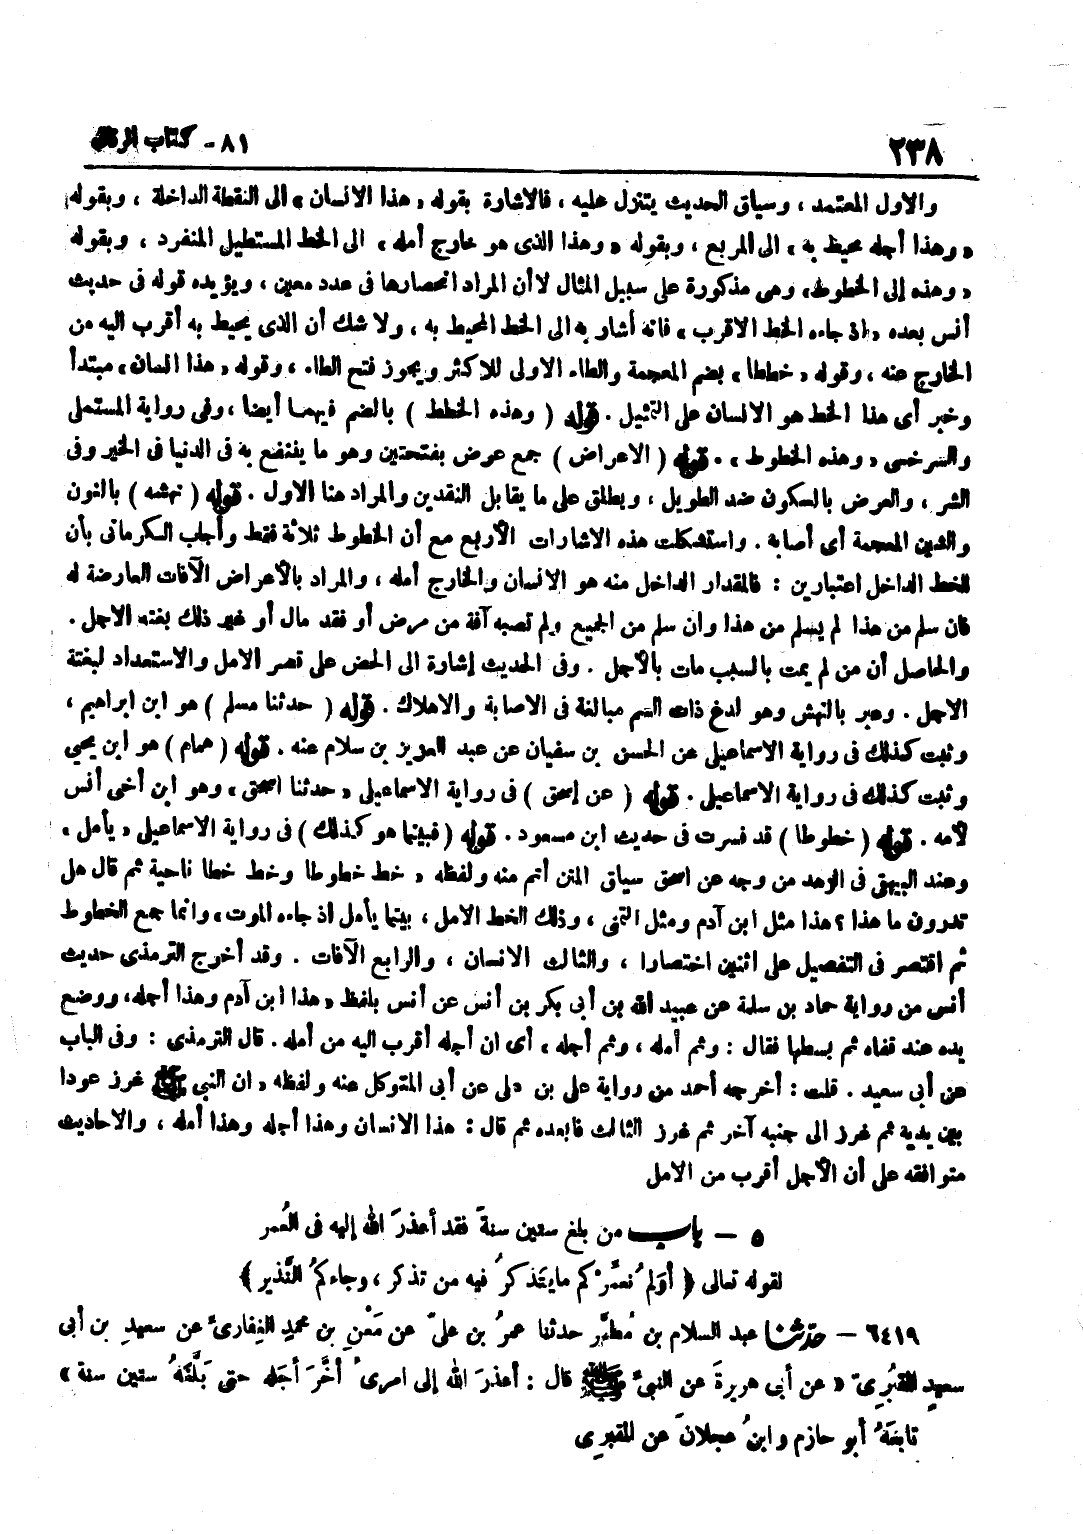 ٢٣٨
٨١ - كتاب الرقاق
والاول المعتمد ، وسياق الحديث يتنزل عليه ، فالاشارة بقوله « هذا الانسان » الى النقطة الداخلة ، وبقوله
« وهذا أجله محيط به » الى المربع ، وبقوله « وهذا الذى هو خارج أمله » الى الخط المستطيل المنفرد ، وبقوله
« وهذه إلى الخطوط » وهى مذكورة على سبيل المثال لا أن المراد انحصارها فى عدد معين ، ويؤيده قوله فى حديث
أنس بعده « اذ جاءه الخط الاقرب » فانه أشار به الى الخط المحيط به ، ولا شك أن الذى يحيط به أقرب اليه من
الخارج عنه ، وقوله « خططا » بضم المعجمة والطاء الاولى للاكثر ويجوز فتح الطاء ، وقوله « هذا انسان » مبتدأ
وخبر أى هذا الخط هو الانسان على التمثيل . قوله ( وهذه الخطط ) بالضم فيهما أيضا ، وفى رواية المستملى
والسرخسى « وهذه الخطوط » . قوله ( الاعراض ) جمع عرض بفتحتين وهو ما ينتفع به فى الدنيا فى الخير وفى
الشر ، والعرض بالسكون ضد الطويل ، ويطلق على ما يقابل النقدين والمراد هنا الاول . قوله ( نهشه ) بالنون
والشين المعجمة أى أصابه . واستشكلت هذه الاشارات الأربع مع أن الخطوط ثلاثة فقط وأجاب الكرمانى بأن
للخط الداخل اعتبارين : فالمقدار الداخل منه هو الانسان والخارج أمله ، والمراد بالأعراض الآفات العارضة له
فان سلم من هذا لم يسلم من هذا وان سلم من الجميع ولم تصبه آفة من مرض أو فقد مال أو غير ذلك بغته الاجل .
والحاصل أن من لم يمت بالسبب مات بالأجل . وفى الحديث إشارة الى الحض على قصر الامل والاستعداد لبغتة
الاجل . وعبر بالنهش وهو لدغ ذات السم مبالغة فى الاصابة والاهلاك . قوله ( حدثنا مسلم ) هو ابن ابراهيم ،
وثبت كذلك فى رواية الاسماعيلى عن الحسن بن سفيان عن عبد العزيز بن سلام عنه . قوله ( همام ) هو ابن يحيى
وثبت كذلك فى رواية الاسماعيلى . قوله ( عن إسحق ) فى رواية الاسماعيلى « حدثنا اسحق » وهو ابن أخى أنس
لأمه . قوله ( خطوطا ) قد فسرت فى حديث ابن مسعود . قوله ( فبينما هو كذلك ) فى رواية الاسماعيلى « يأمل »
وعند البيهقى فى الزهد من وجه عن اسحق سياق المتن أتم منه ولفظه « خط خطوطا وخط خطا ناحية ثم قال هل
تدرون ما هذا ؟ هذا مثل ابن آدم ومثل التمنى ، وذلك الخط الامل ، بينما يأمل اذ جاءه الموت » وانما جمع الخطوط
ثم اقتصر فى التفصيل على اثنين اختصارا ، والثالث الانسان ، والرابع الآفات . وقد أخرج الترمذى حديث
أنس من رواية حماد بن سلمة عن عبيد الله بن أبى بكر بن أنس عن أنس بلفظ « هذا ابن آدم وهذا أجله ، ووضع
يده عند قفاه ثم بسطها فقال : وثم أمله ، وثم أجله » أى ان أجله أقرب اليه من أمله . قال الترمذى : وفى الباب
عن أبى سعيد . قلت : أخرجه أحمد من رواية على بن على عن أبى المتوكل عنه ولفظه « ان النبى ﷺ غرز عودا
بين يديه ثم غرز الى جنبه آخر ثم غرز الثالث فأبعده ثم قال : هذا الانسان وهذا أجله وهذا أمله ، والاحاديث
متوافقة على أن الأجل أقرب من الامل
٥ - باب من بلغ ستين سنةً فقد أعذرَ الله إليه فى العُمر
لقوله تعالى ﴿ أوَلم نُعمِّرْكم ما يتذكرُ فيه من تذكر ، وجاءكمُ النَّذير ﴾
٦٤١٩ - حدثنا عبد السلام بن مُطهَّرٍ حدثنا عمرُ بن علىّ عن مَعْنِ بن محمدٍ الغِفارىّ عن سعيدِ بن أبى
سعيدٍ المقبُرِىّ « عن أبى هريرةَ عن النبىِّ ﷺ قال : أعذرَ الله إلى امرئٍ أخَّرَ أجَله حتى بَلَّغَهُ ستين سنة »
تابعَهُ أبو حازم وابنُ عجلانَ عن المقبرِى